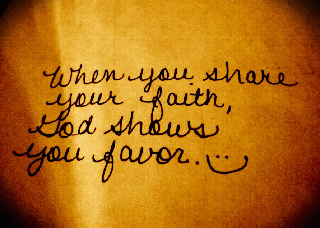 When you share
your faith,
God shows
you favor.